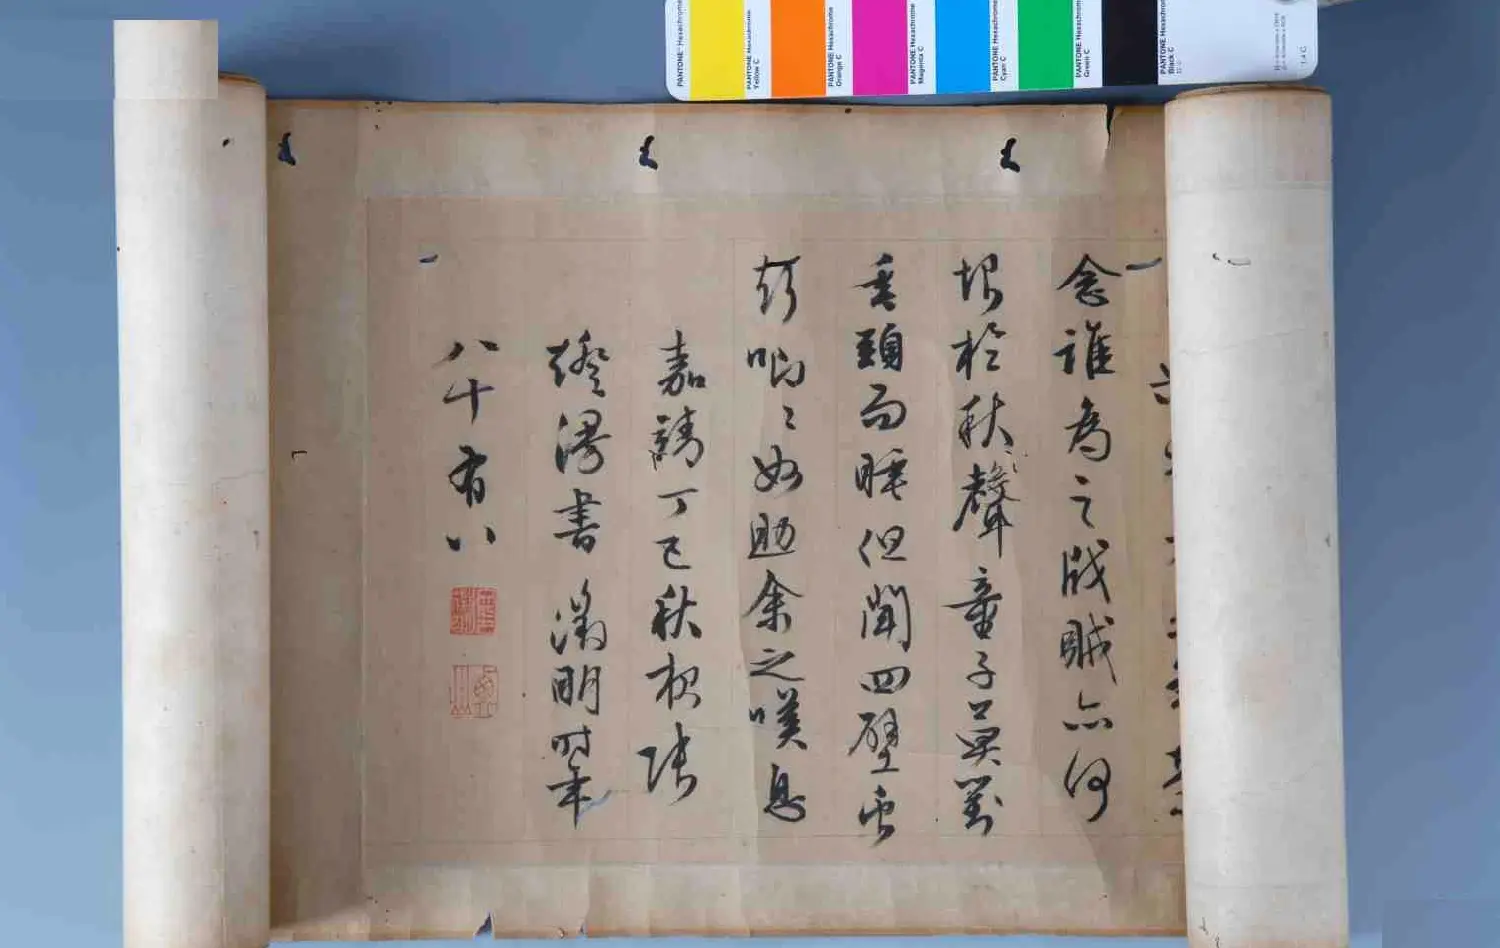 念誰為之戕賊亦何
恨於秋聲童子莫對
垂頭而睡但聞四壁虫
聲唧〻如助余之嘆息
嘉靖丁巳秋夜張
燈漫書 徵明時年
八十有八
PANTONE Hexachrome
PANTONE Hexachrome
Yellow C
PANTONE Hexachrome
Orange C
PANTONE Hexachrome
Magenta C
PANTONE Hexachrome
Cyan C
PANTONE Hexachrome
Green C
PANTONE Hexachrome
Black C